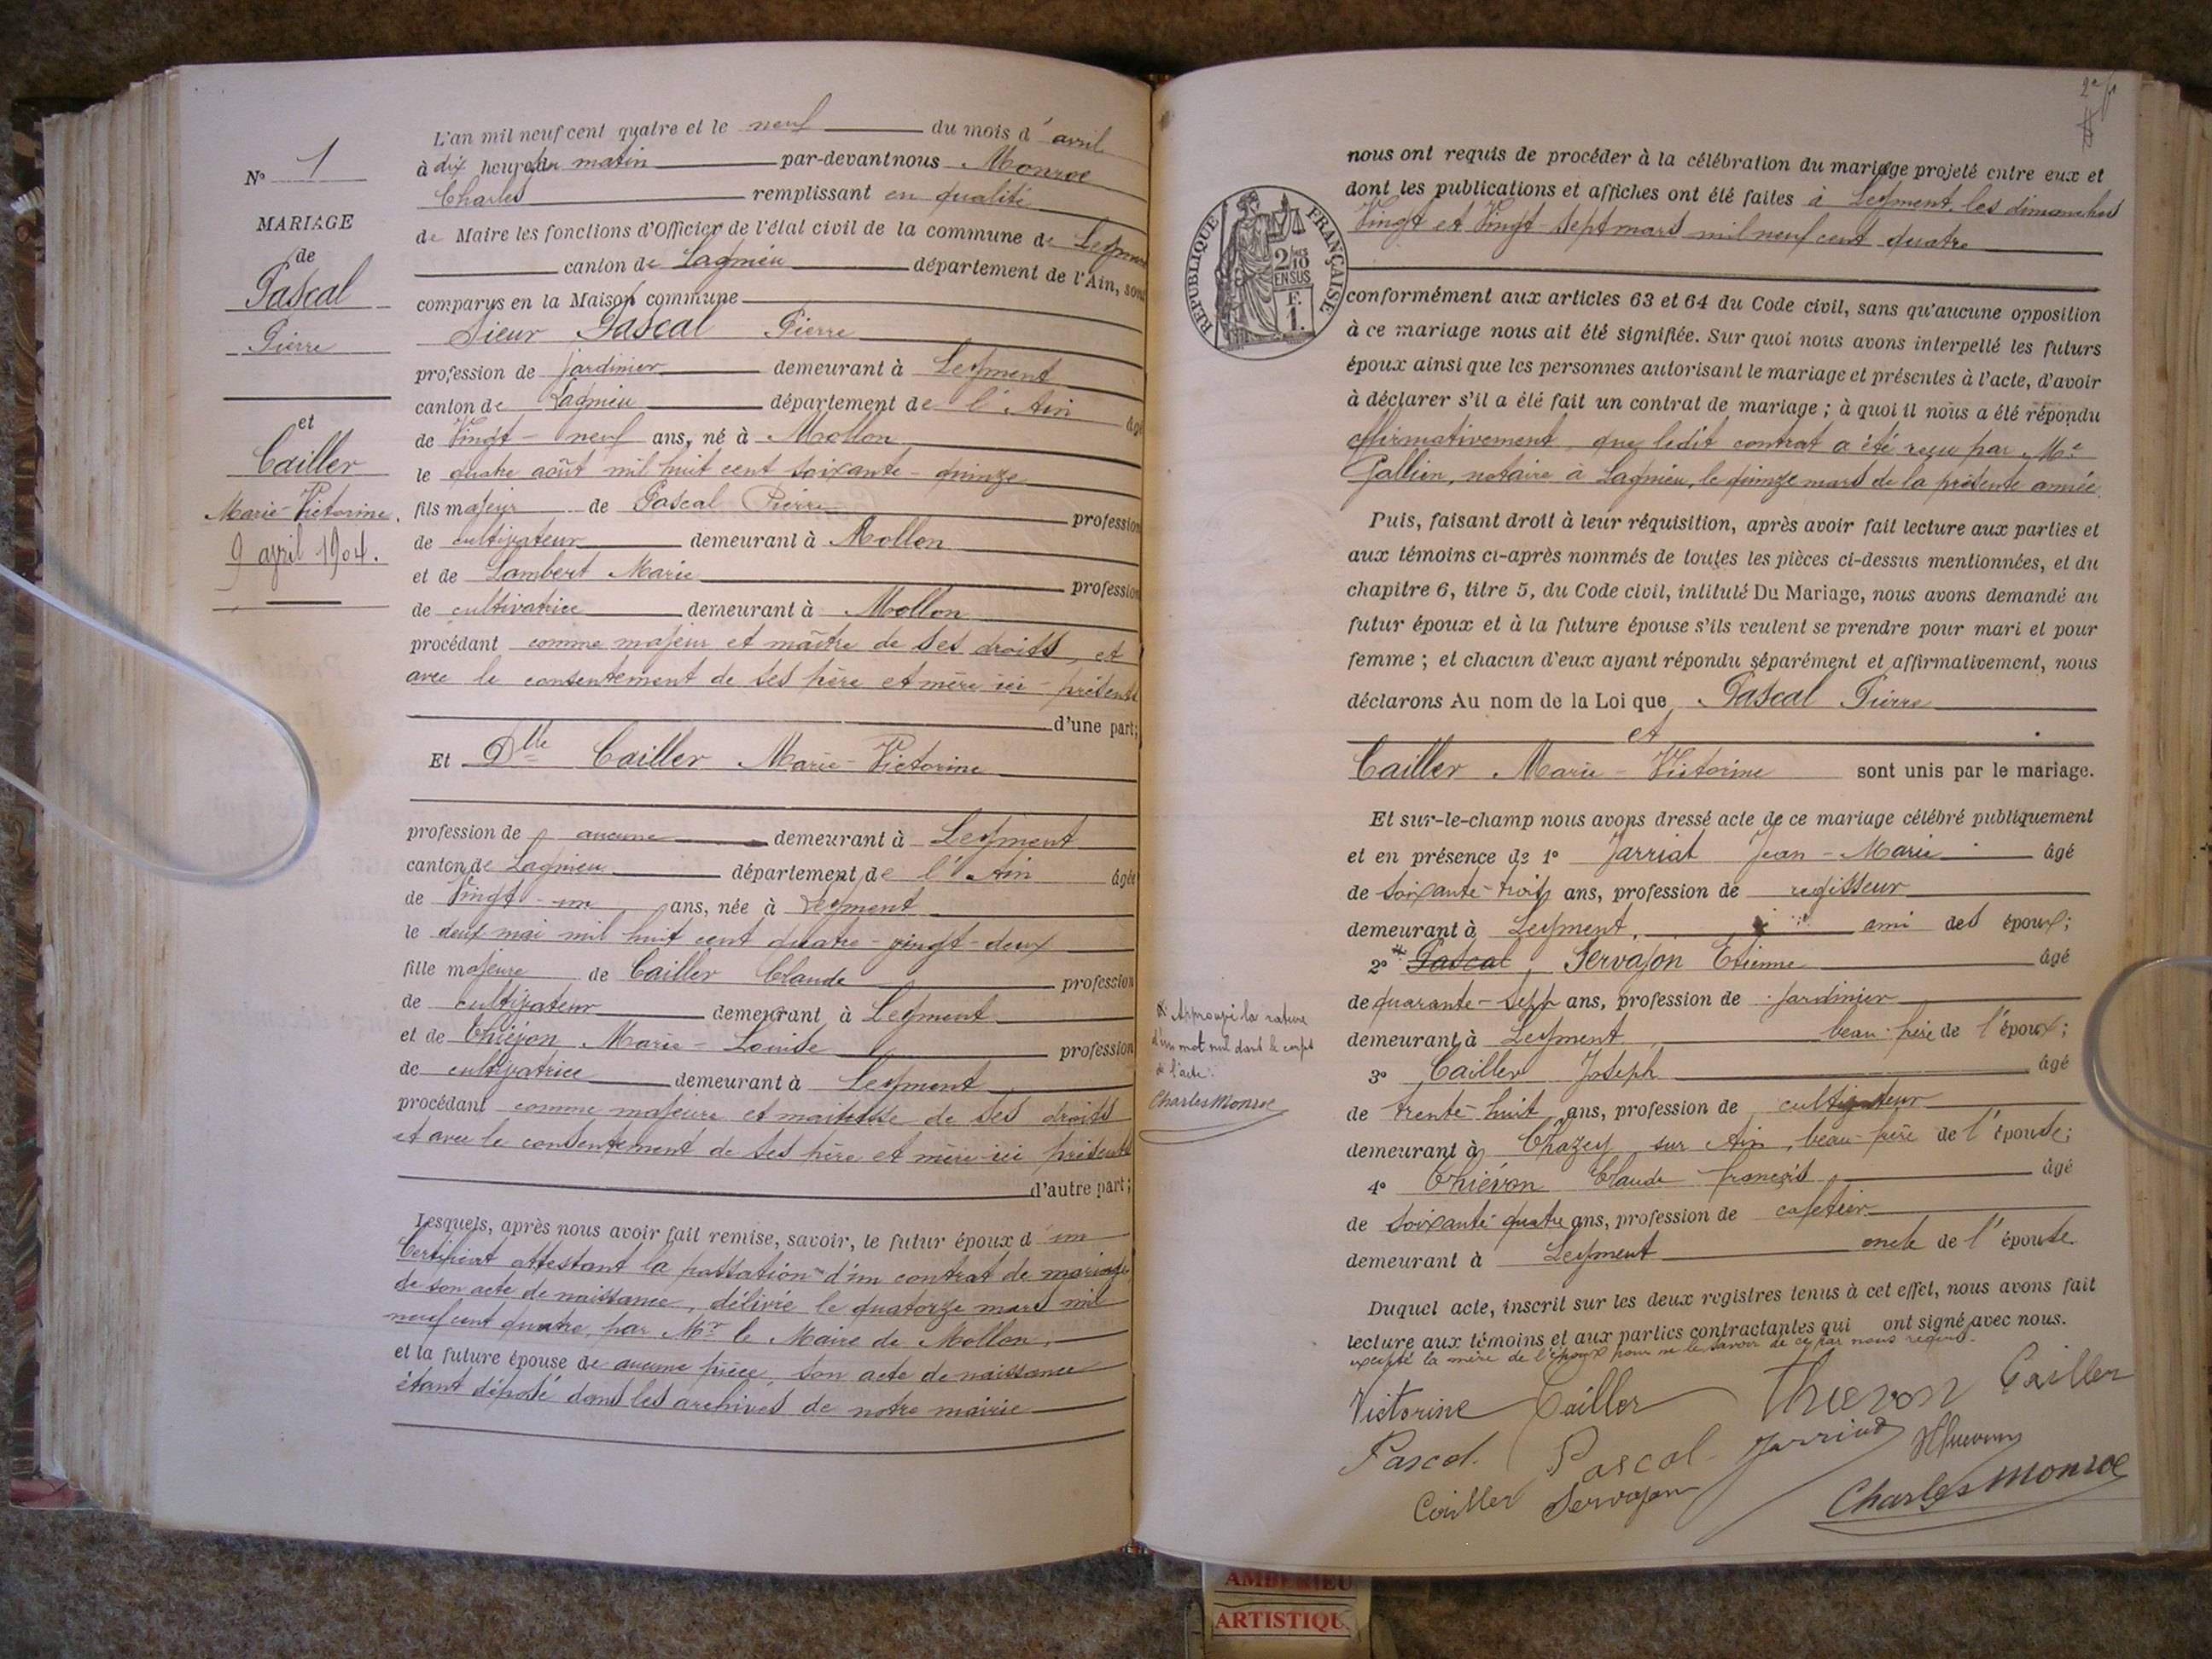 N° 1
MARIAGE
de
Pascal
Pierre
et
Cailler
Marie-Victorine.
9 avril 1904.
L'an mil neuf cent quatre et le neuf du mois d'avril
à dix heures du matin par-devant nous Monroe
Charles remplissant en qualité
de Maire les fonctions d'Officier de l'état civil de la commune de Leyment
canton de Lagnieu département de l'Ain, sont
comparus en la Maison commune
Sieur Pascal Pierre
profession de jardinier demeurant à Leyment
canton de Lagnieu département de l'Ain âgé
de Vingt-neuf ans, né à Mollon
le quatre août mil huit cent soixante-quinze
fils majeur de Pascal Pierre profession
de cultivateur demeurant à Mollon
et de Lambert Marie profession
de cultivatrice demeurant à Mollon
procédant comme majeur et maître de ses droits, et
avec le consentement de ses père et mère ici présents
d'une part;
Et Dlle Cailler Marie-Victorine
profession de aucune demeurant à Leyment
canton de Lagnieu département de l'Ain âgée
de Vingt-un ans, née à Leyment
le deux mai mil huit cent quatre-vingt-deux
fille majeure de Cailler Claude profession
de cultivateur demeurant à Leyment
et de Thiévon Marie-Louise profession
de cultivatrice demeurant à Leyment
procédant comme majeure et maîtresse de ses droits
et avec le consentement de ses père et mère ici présents
d'autre part;
Lesquels, après nous avoir fait remise, savoir, le futur époux d'un
Certificat attestant la passation d'un contrat de mariage
de son acte de naissance, délivré le quatorze mars mil
neuf cent quatre, par Mr le Maire de Mollon,
et la future épouse de aucune pièce, son acte de naissance
étant déposé dans les archives de notre mairie
2e
RÉPUBLIQUE FRANÇAISE
2/10 EN SUS
F. 1.
nous ont requis de procéder à la célébration du mariage projeté entre eux et
dont les publications et affiches ont été faites à Leyment, les dimanches
Vingt et Vingt-sept mars mil neuf cent quatre
conformément aux articles 63 et 64 du Code civil, sans qu'aucune opposition
à ce mariage nous ait été signifiée. Sur quoi nous avons interpellé les futurs
époux ainsi que les personnes autorisant le mariage et présentes à l'acte, d'avoir
à déclarer s'il a été fait un contrat de mariage; à quoi il nous a été répondu
affirmativement, que ledit contrat a été reçu par Me
Gallien, notaire à Lagnieu, le quinze mars de la présente année.
Puis, faisant droit à leur réquisition, après avoir fait lecture aux parties et
aux témoins ci-après nommés de toutes les pièces ci-dessus mentionnées, et du
chapitre 6, titre 5, du Code civil, intitulé Du Mariage, nous avons demandé au
futur époux et à la future épouse s'ils veulent se prendre pour mari et pour
femme; et chacun d'eux ayant répondu séparément et affirmativement, nous
déclarons Au nom de la Loi que Pascal Pierre
et
Cailler Marie-Victorine sont unis par le mariage.
Et sur-le-champ nous avons dressé acte de ce mariage célébré publiquement
et en présence de 1° Jarriat Jean-Marie âgé
de soixante-trois ans, profession de régisseur
demeurant à Leyment, ami des époux;
2° Pascal, Servajon Etienne âgé
de quarante-sept ans, profession de jardinier
demeurant à Leyment, beau-père de l'époux;
3° Cailler Joseph âgé
de trente-huit ans, profession de cultivateur
demeurant à Chazey sur Ain, beau-père de l'épouse;
4° Thiévon Claude françois âgé
de soixante-quatre ans, profession de cafetier
demeurant à Leyment oncle de l'épouse.
Duquel acte, inscrit sur les deux registres tenus à cet effet, nous avons fait
lecture aux témoins et aux parties contractantes qui ont signé avec nous.
excepté la mère de l'époux pour ne le savoir de ce par nous requis.
Approuvé la rature
d'un mot nul dans le corps
de l'acte.
Charles Monroe
Victorine Cailler Thievon Cailler
Pascal. Pascal Jarriat
Cailler Servajon Charles Monroe
AMBERIEU
ARTISTIQU